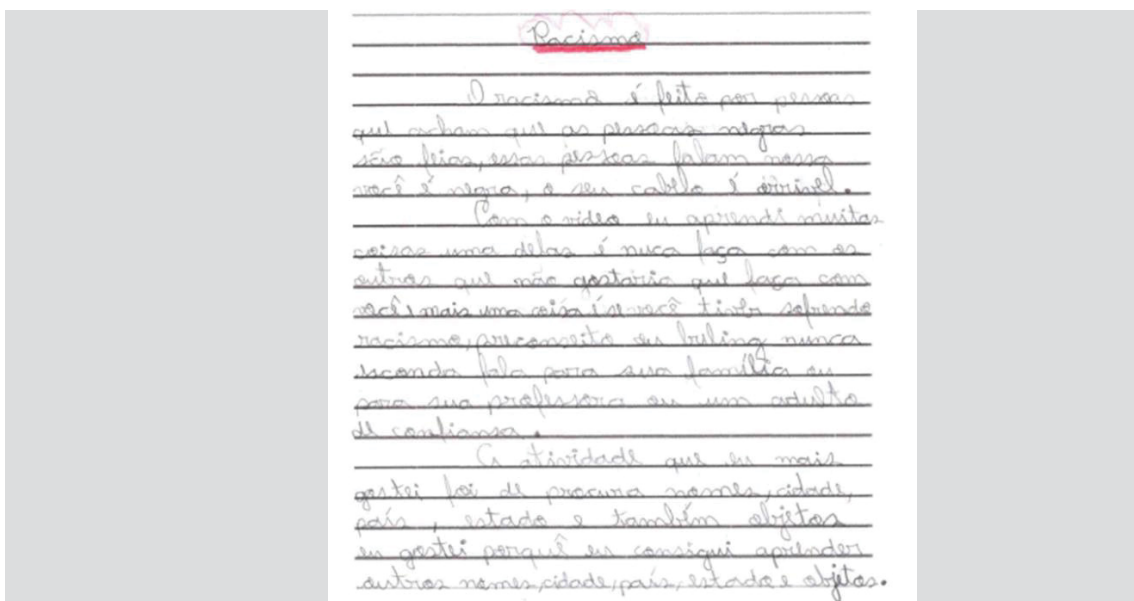 Racismo
O racismo é feito por pessoas
que acham que as pessoas negras
são feias, essas pessoas falam nossa
você é negra, o seu cabelo é orrivel.
Com o video eu aprendi muitas
coisas uma delas é nuca faça com os
outros que não gostaria que faça com
você mais uma coisa se você tiver sofrendo
racismo, preconseito ou buling nunca
esconda fala para sua família ou
para sua professora ou um adulto
de confiansa.
A atividade que eu mais
gostei foi de procura nomes, cidade,
país, estado e também objetos
eu gostei porquê eu consigui aprender
outros nomes, cidade, país, estado e objetos.